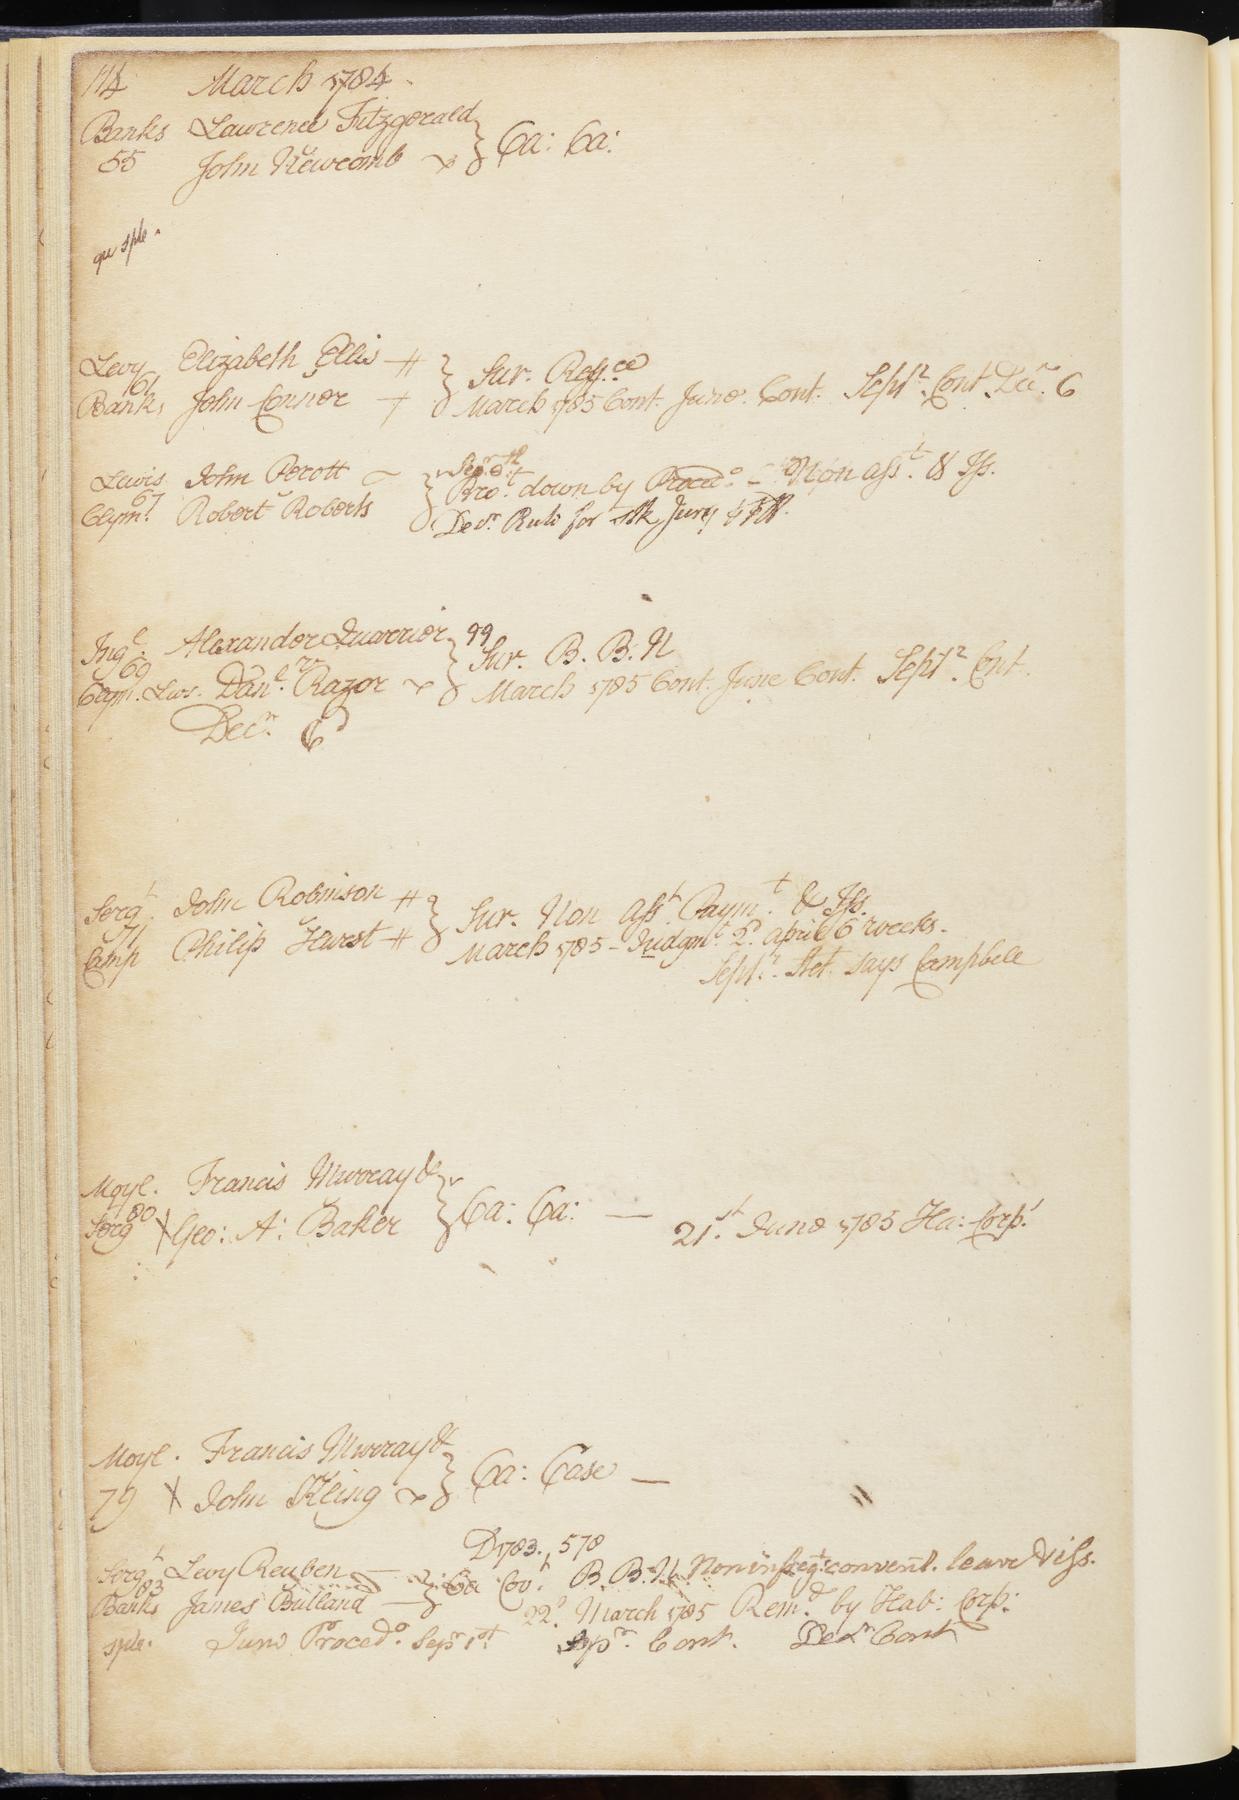 114 March 1784
Banks Lawrence Fitzgerald } Ca: Ca:
55 John Newcomb
qu sple.
Levy Elizabeth Ellis } Sur. Ref.ce
61
Banks John Connor March 1785 Cont. June. Cont. Septr. Cont. Decr. C
Lewis John Perott } Sepr.
67 Bro.t down by Proced.o - Non asst. & Iss.
Clym.r Robert Roberts Decr. Rule for Jury
Ing.l Alexander Quarrier } 99 Sur. B. B. N
69
Clym. Lws. Dan.l Razor March 1785 Cont. June Cont. Septr. Cont.
Decr. C
Serg.t John Robinson } Sur. Non asst. Paym.t & Iss.
71
Camp Philip Hurst March 1785 - Judgm.t 2d. april 6 weeks.
Septr. Set. says Campbell
Moyl. Francis Murray & } Ca: Ca: — 21st. June 1785 Ha: Corp.
80
Serg Geo: A: Baker
Moyl. Francis Murray & } Ca: Case —
79 John Kling
D 1783. 578
Serg.t Levy Reuben } Ca Cov.t B. B. N. Non infreg: convent. leave & iss.
83
Banks James Bulland 22d March 1785 Rem.d by Hab: Corp:
sple. June Proced.o Sepr 1st Sepr. Cont. Decr Cont